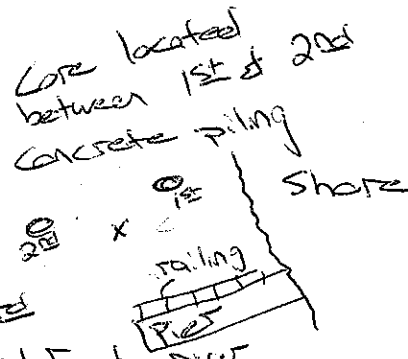 Core located
between 1st & 2nd
concrete piling
1st
Shore
2nd
x
railing
Pier